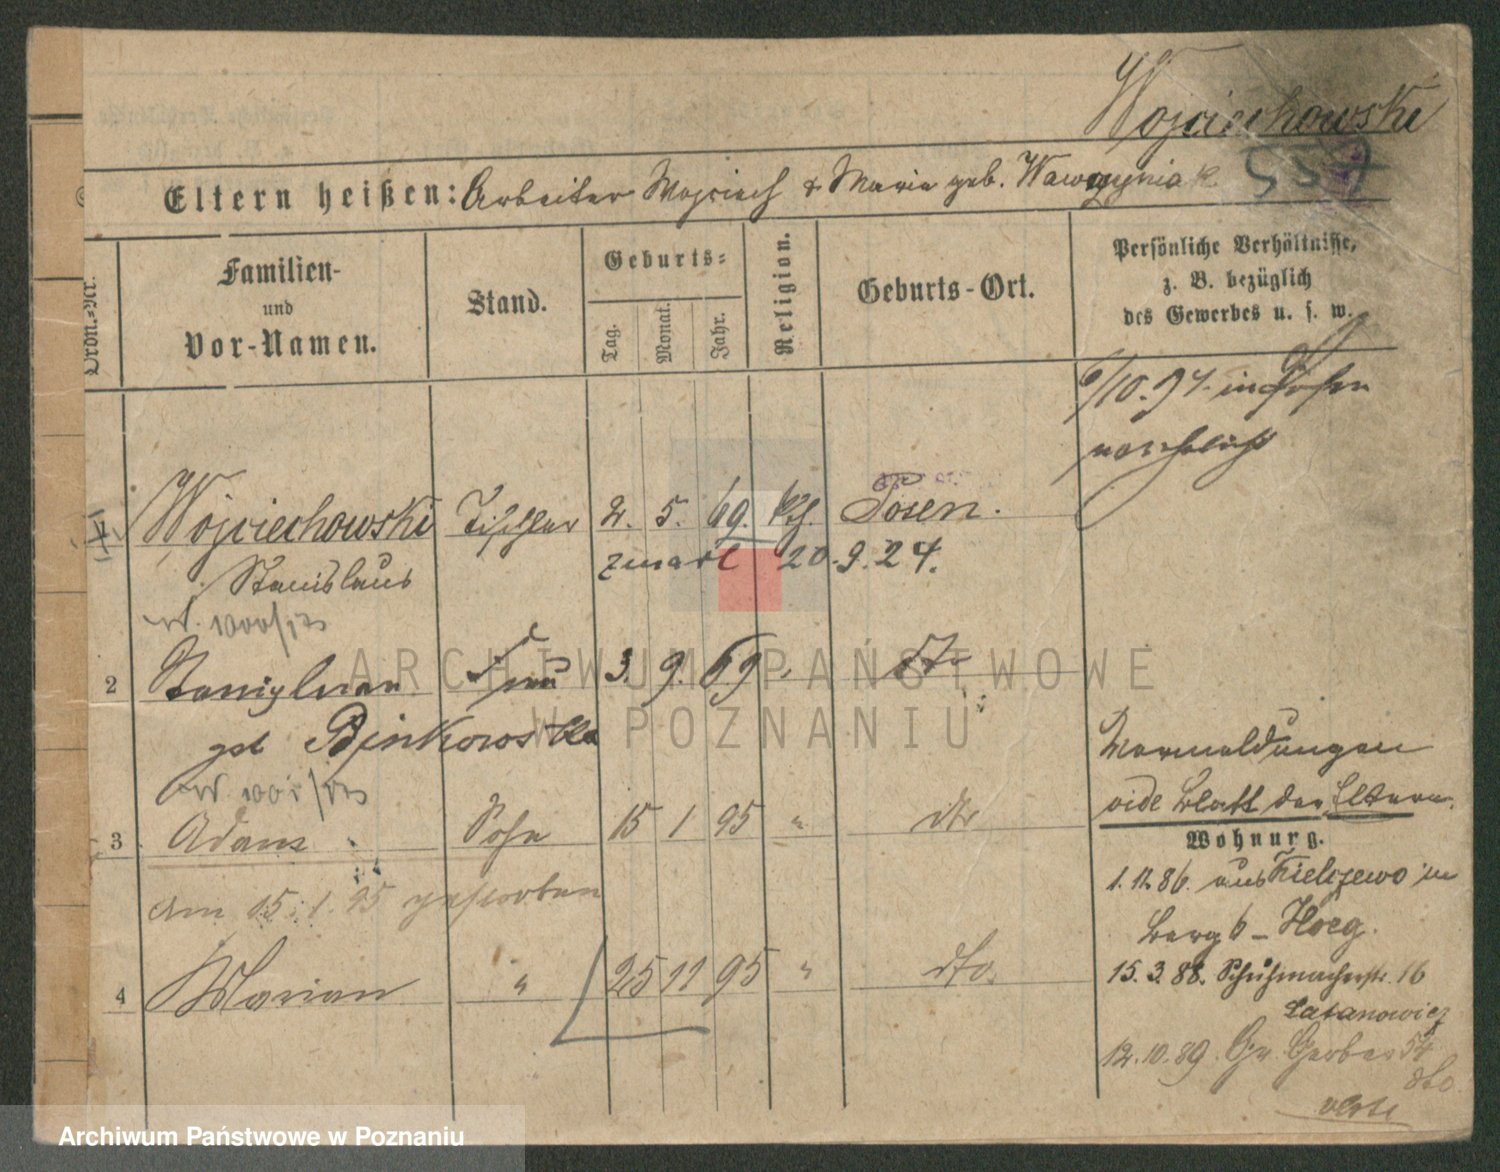 Wojciechowski
Eltern heißen: Arbeiter Wojciech & Maria geb. Wawrzyniak
Ordn.-Nr.
Familien-
und
Vor-Namen.
Stand.
Geburts-
Tag.
Monat.
Jahr.
Religion.
Geburts-Ort.
Persönliche Verhältnisse,
z. B. bezüglich
des Gewerbes u. s. w.
6/10.94. in Posen
verehelicht
1 Wojciechowski Tischler 2. 5. 69. kth. Posen.
Stanislaus
zmarł 20.9.24.
2 Stanislawa Frau 3. 9. 69 " dto
geb Binkowska
Vormeldungen
vide Blatt der Eltern.
3 Adam Sohn 15 1 95 " dto
am 15.1.95 gestorben
4 Marian " 25 11 95 " dto.
Wohnung.
1.11.86. aus Kielczewo in
Berg 6 - Hoeg.
15.3.88. Schuhmacherstr. 16
Latanowicz
12.10.89. Gr. Gerber 54
dto
verte
ARCHIWUM PAŃSTWOWE
W POZNANIU
Archiwum Państwowe w Poznaniu